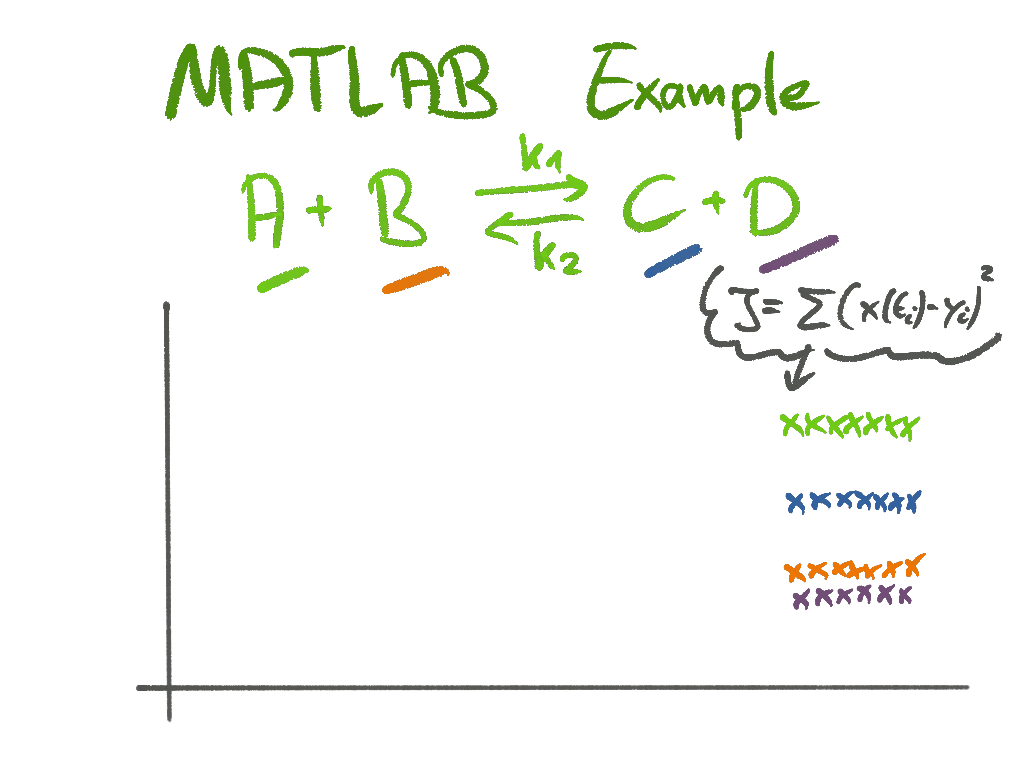 MATLAB Example
k1
A + B ⇌ C + D
k2
J = Σ (x(t_i) - y_i)²
xxxxxxx
xxxxxxx
xxxxxxx
xxxxxx